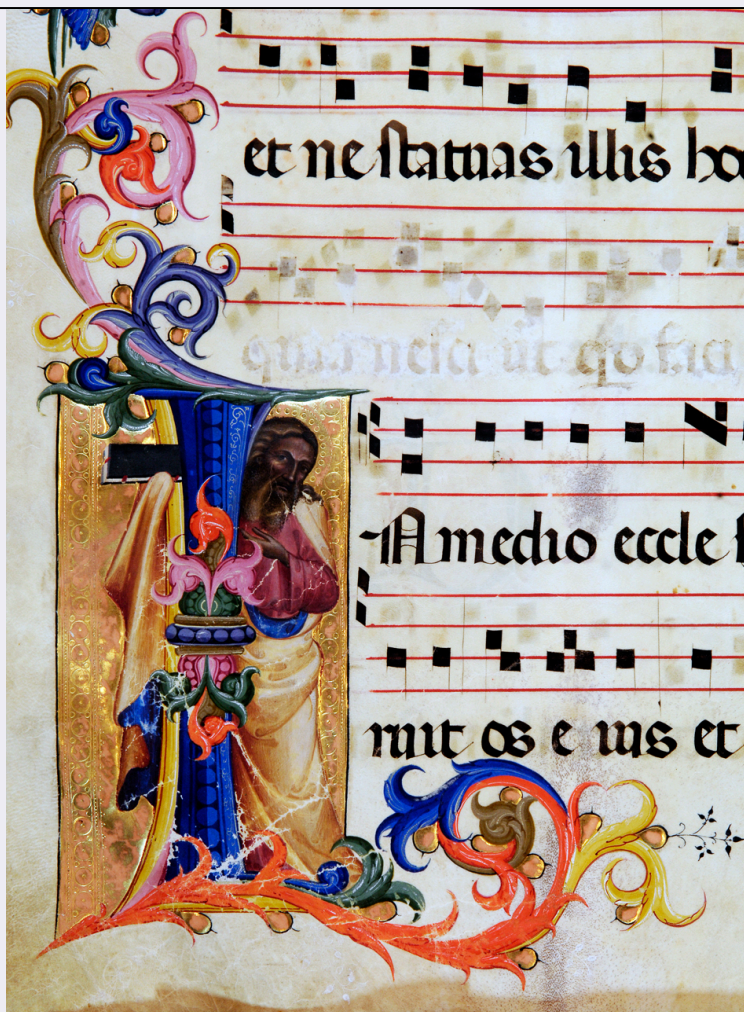 et ne ſtatuas illis
quia neſci
IN medio eccle
ruit os e ius et